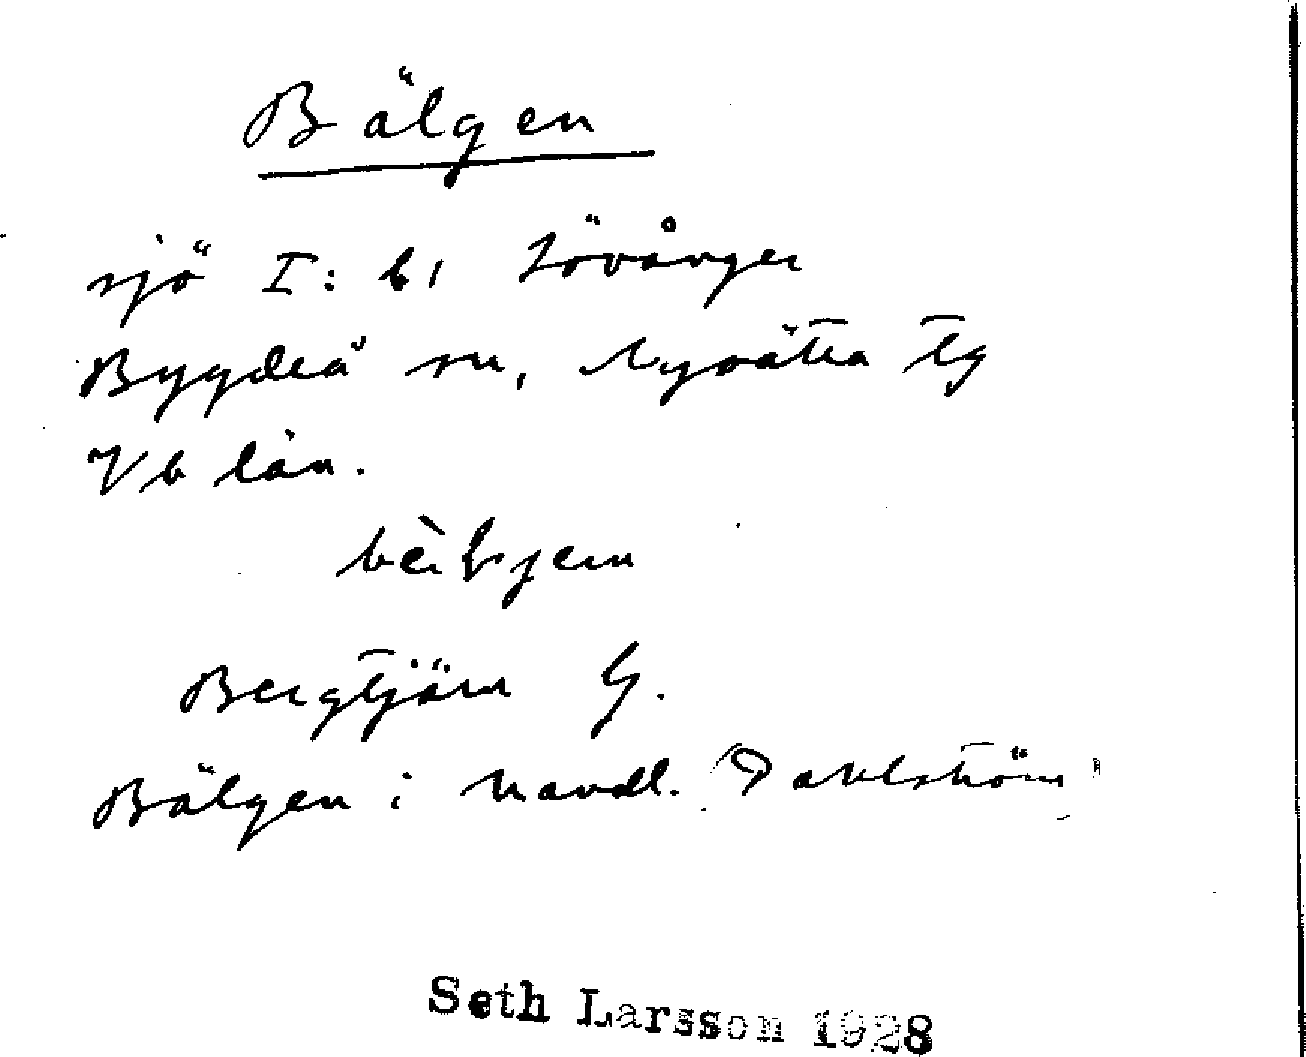 Bälgen
sjö I: b1 Lövånger
Bygdeå sn, Nysätra tg
Vb län.
Bergtjärn G.
Bälgen i handl. Dahlström
Seth Larsson 1928